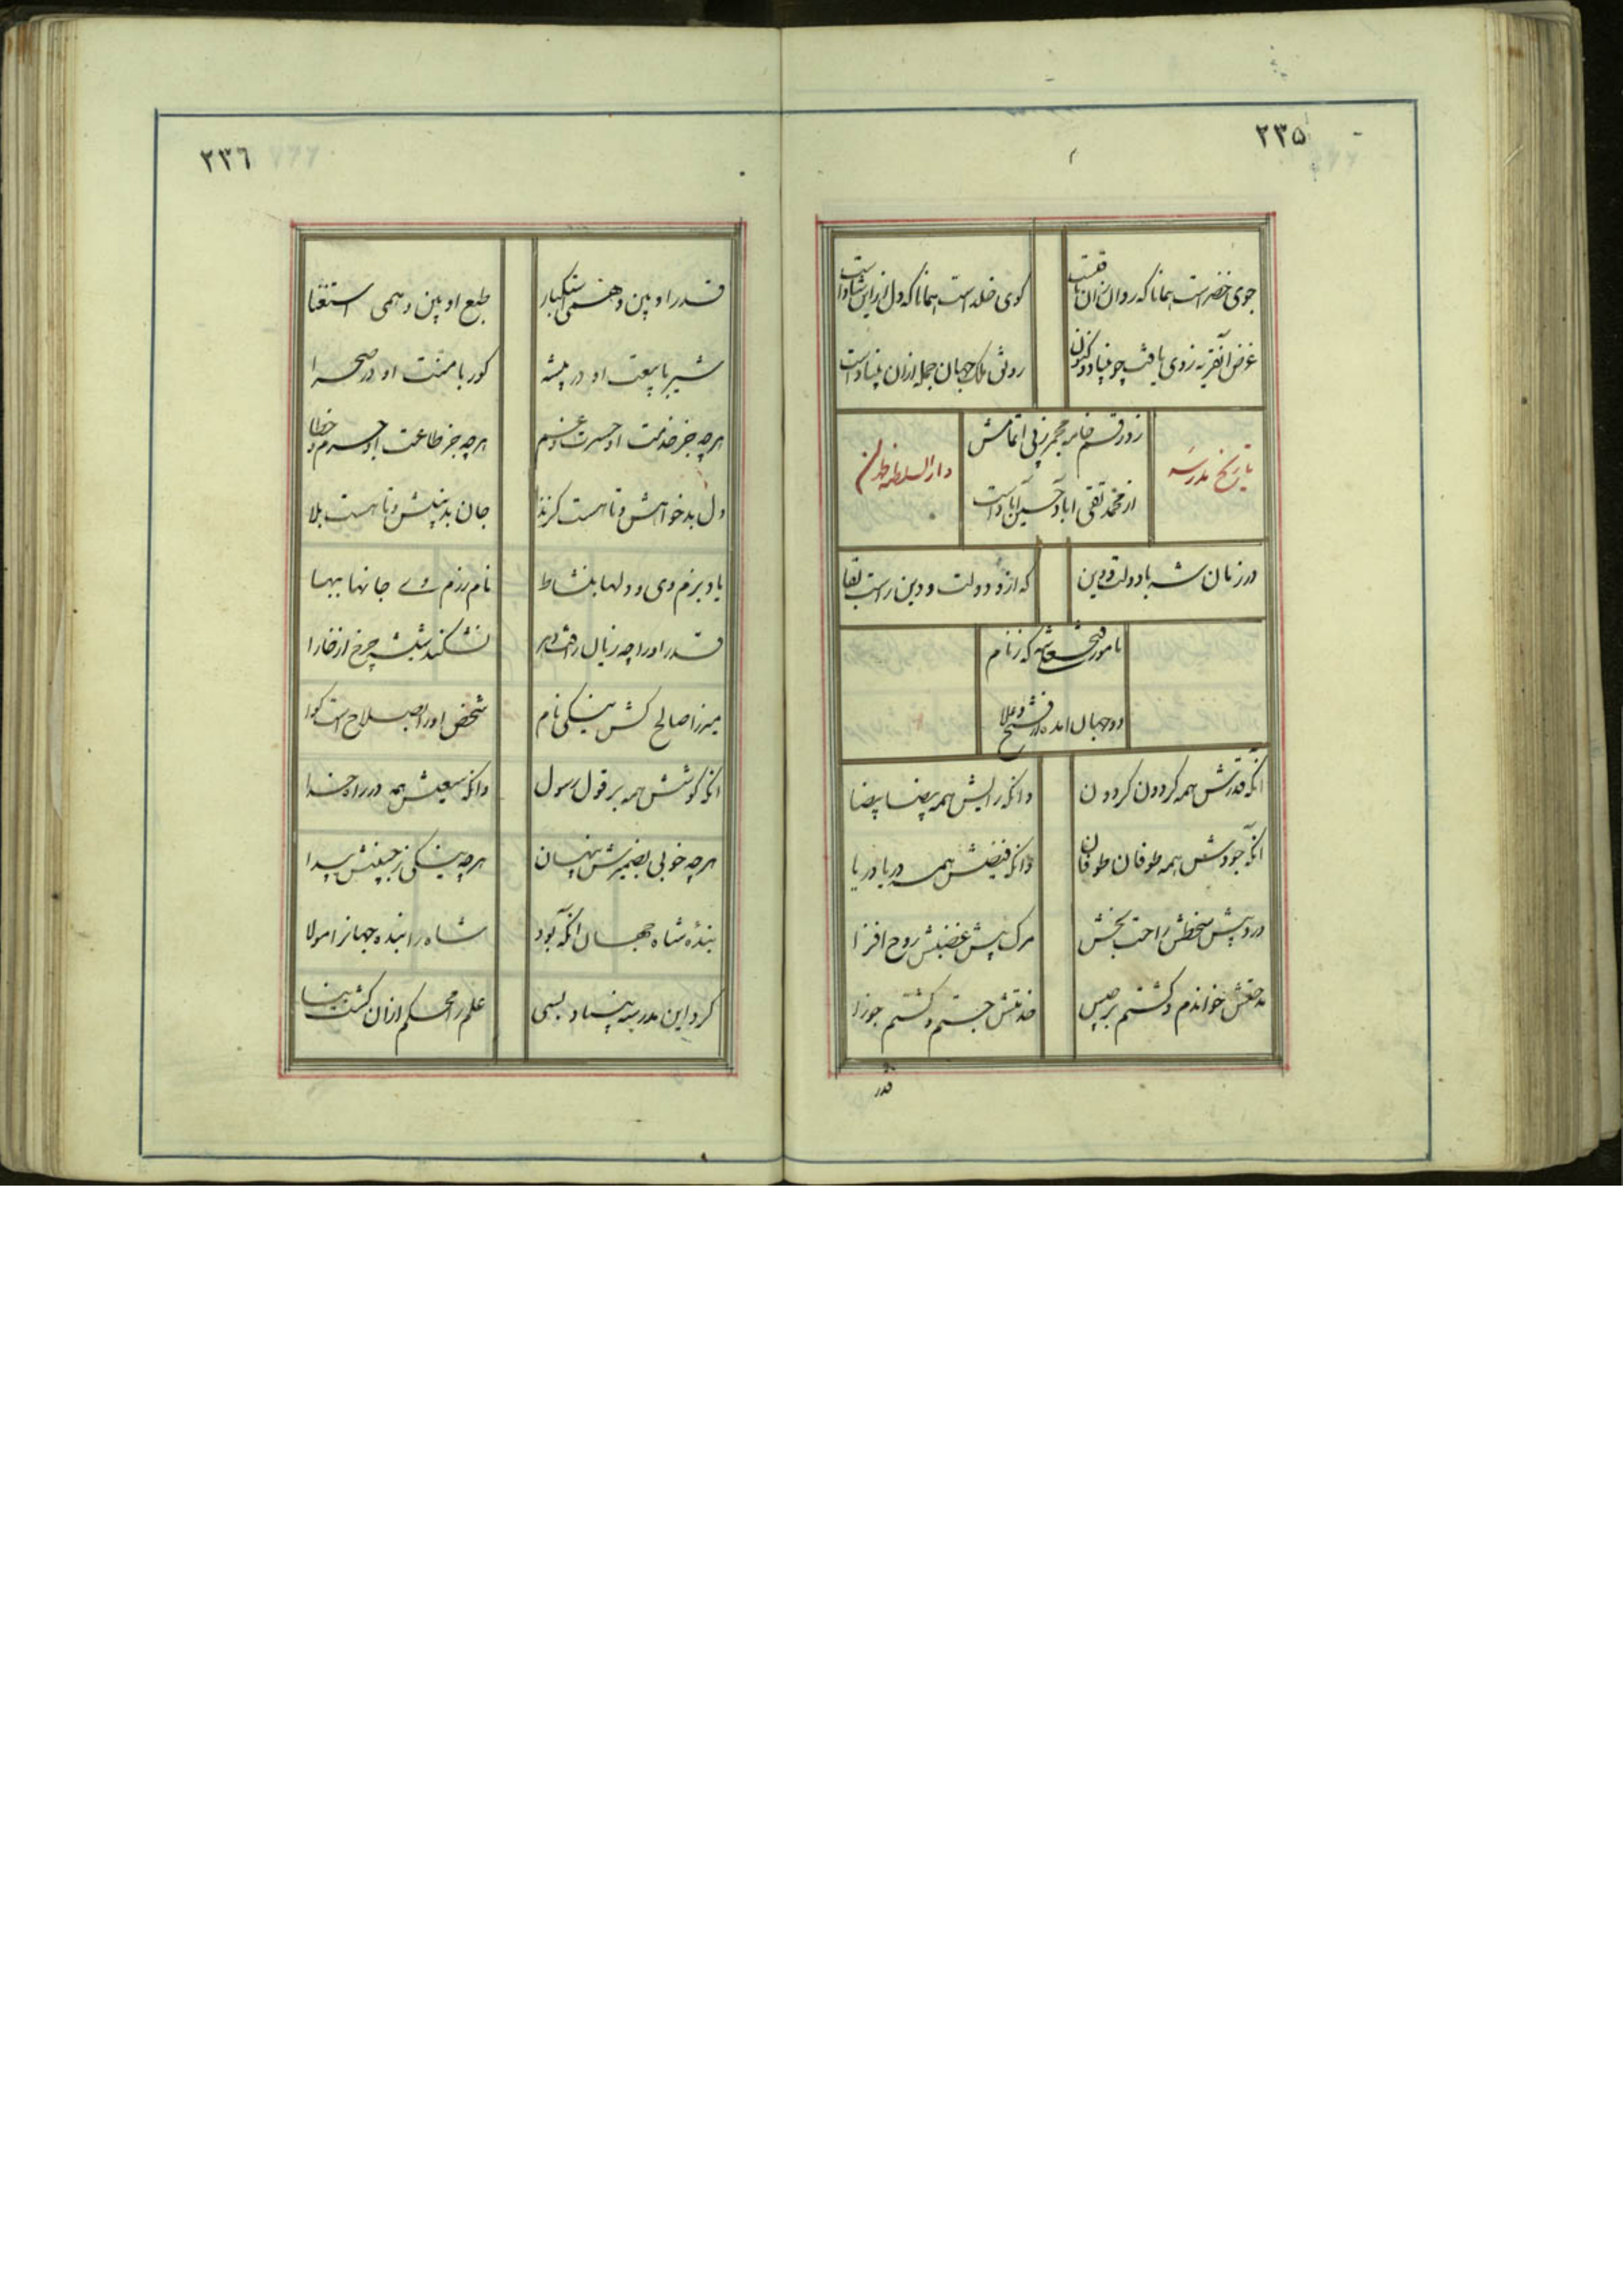 ۲۳۵
جوی خضر است همانا که روان زان یافت
کوی خلد است همانا که دل از این شاد است
غرض آنقریه ز وی یافت چو بنیاد کنون
رونق ملک جهان جمله از ان بنیاد است
تاریخ مدرسه
زد رقم خامه مجمر ز پی اتمامش
از محمد تقی اباد حسین آباد است
دار السلطنه طهران
در زمان شه با دولت و دین
که از و دولت و دین راست بقا
نامور فتحعلی شه که ز نام
دو جهان امده در فتح و علا
آنکه قدرش همه کردون کردون
وانکه رایش همه بیضا بیضا
آنکه جودش همه طوفان طوفان
وانکه فیضش همه دریا دریا
درد پیش سخطش راحت بخش
مرک پیش غضبش روح افزا
مدحتش خواندم و کشتم برجیس
خدمتش جستم و کشتم جوزا
قدر
۲۳٦
قدر او بین و همی استکبار
طبع او بین و همی استغنا
شیر با بیعت او در بیشه
کور با منت او در صحرا
هرچه جز خدمت او حسرت و غم
هرچه جز طاعت او جرم و خطا
دل بدخواهش و تا هست کزند
جان بدبینش و تا هست بلا
یاد بزم وی و دلها بنشاط
نام رزم وی و جانها بهبا
قدر اورا چه زیان از دهر
نشکند شیشه چرخ از خارا
میرزا صالح کش نیکی نام
شخص اورا بصلاح است کوا
آنکه کوشش همه بر قول رسول
وانکه سعیش همه در راه خدا
هرچه خوبی بضمیرش پنهان
هرچه نیکی ز جبینش پیدا
بنده شاه جهان آنکه بود
شاه را بنده جهانرا مولا
کرد این مدرسه بنیاد بسی
علم را محکم از ان کشت بنا